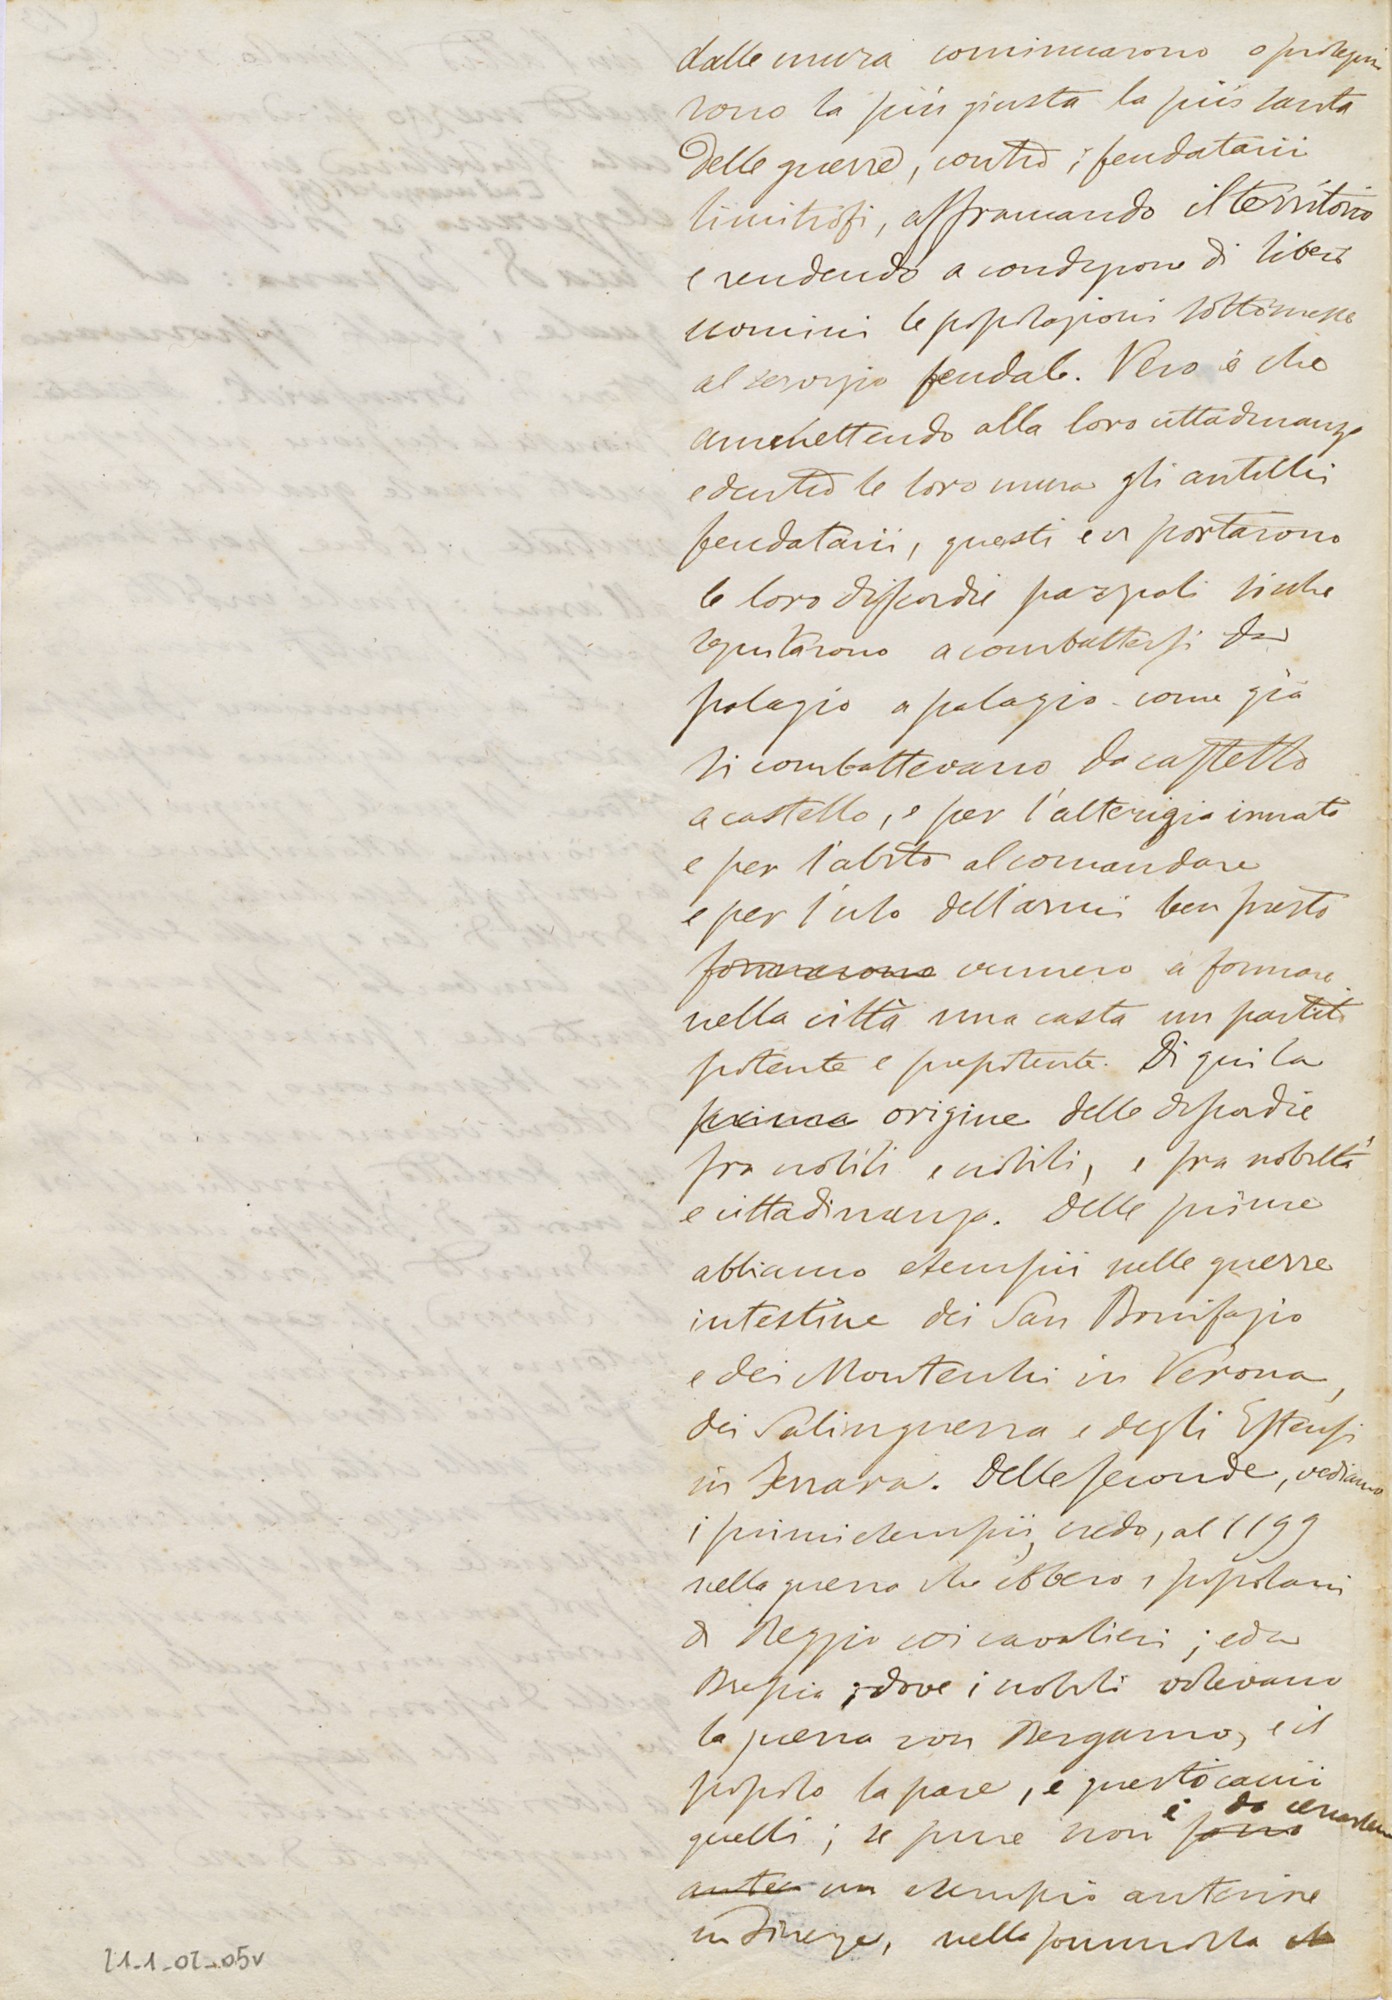 dalle mura cominciarono o prolegui
rono la più giusta la più santa
delle guerre, contro i feudatarii
limitrofi, affrancando il territorio
e rendendo a condizione di liberi
uomini le popolazioni sottomesse
al servizio feudale. Vero è che
ammettendo alla loro cittadinanza
e dentro le loro mura gli antichi
feudatarii, questi e vi portarono
le loro discordie parziali sicché
seguitarono a combattersi da
palagio a palagio come già
si combattevano da castello
a castello, e per l'alterigia innata
e per l'abito al comandare
e per l'uso dell'armi ben presto
formarono vennero a formare
nella città una casta un partito
potente e prepotente. Di qui la
prima origine delle discordie
fra nobili e nobili, e fra nobiltà
e cittadinanza. Delle prime
abbiamo esempii nelle guerre
intestine dei San Bonifazio
e dei Montecchi in Verona,
dei Salinguerra e degli Estensi
in Ferrara. Delle seconde, vediamo
i primi esempii, credo, al 1199
nella guerra che ebbero i popolani
di Reggio coi cavalieri; ed a
Brescia; dove i nobili volevano
la guerra con Bergamo, e il
popolo la pace, e questo cacciò
quelli; se pure non sono è da
antec un esempio anteriore
in Firenze, nella sommossa ch
71-1_02_05v